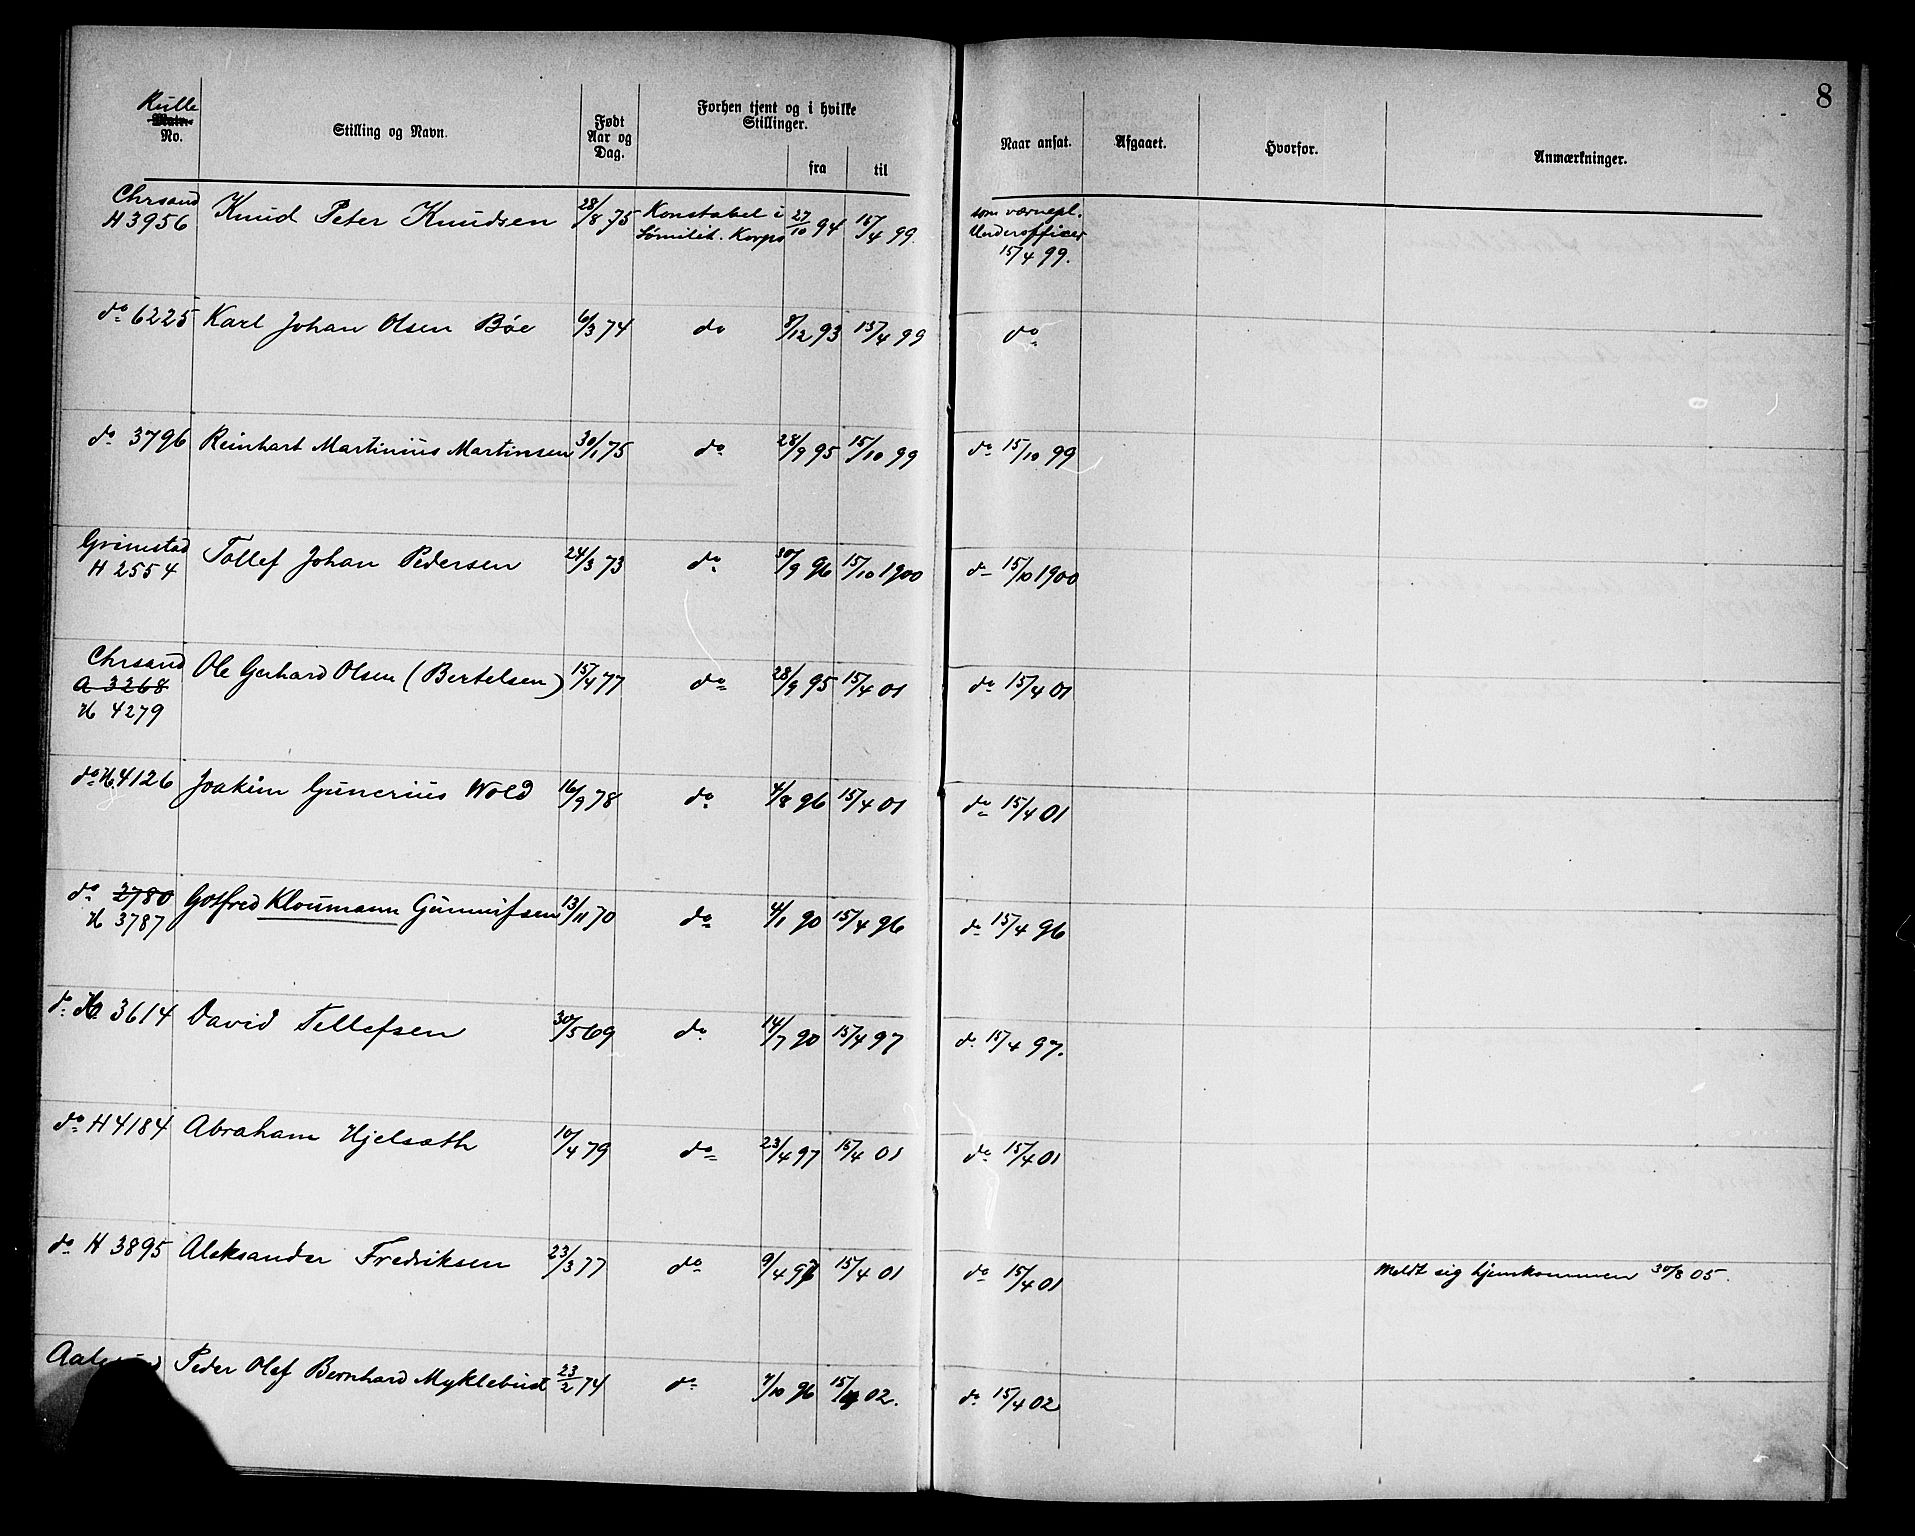 8
Rulle
Matr.
No.
Stilling og Navn.
Født
Aar og
Dag.
Forhen tjent og i hvilke
Stillinger.
fra
til
Naar ansat.
Afgaaet.
Hvorfor.
Anmærkninger.
Chrsand Knud Peter Knudsen 28/8 75 Konstabel i 27/10 94 15/4 99. som værnepl.
H 3956 Sømilit. Korps Underofficer
15/4 99.
do 6225 Karl Johan Olsen Böe 6/3 74 do 8/12 93 15/4 99 do
do 3796 Reinhart Martinius Martinsen 30/1 75 do 28/9 95 15/10 99 do 15/10 99
Grimstad Tallef Johan Pedersen 24/3 73 do 30/9 96 15/10 1900 do 15/10 1900
H 2554
Chrsand Ole Gerhard Olsen (Bertelsen) 15/4 77 do 28/9 95 15/4 01 do 15/4 01
A 3268
H 4279
do H. 4126 Joakim Gunerius Wold 16/9 78 do 4/8 96 15/4 01 do 15/4 01
do 2780 Gotfred Kloumann Gunnufsen 13/11 70 do 4/1 90 15/4 96 do 15/4 96
H 3787
do H. 3614 David Tellefsen 30/5 69 do 14/7 90 15/4 97 do 15/4 97.
do H 4184 Abraham Hjelsæth 10/4 79 do 23/4 97 15/4 01 do 15/4 01
do H 3895 Aleksander Fredriksen 23/3 77 do 9/4 97 15/4 01 do 15/4 01 Meldt sig hjemkommen 30/8 05.
Peder Olaf Bernhard Myklebust 23/2 74 do 7/10 96 15/4 02. do 15/4 02